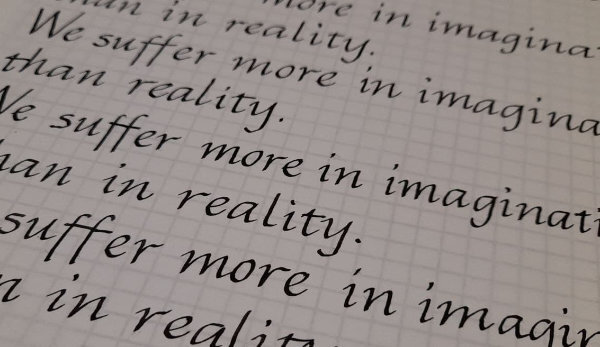 more in imaginat
han in reality.
We suffer more in imagina
than reality.
We suffer more in imaginati
han in reality.
suffer more in imagin
n in reality